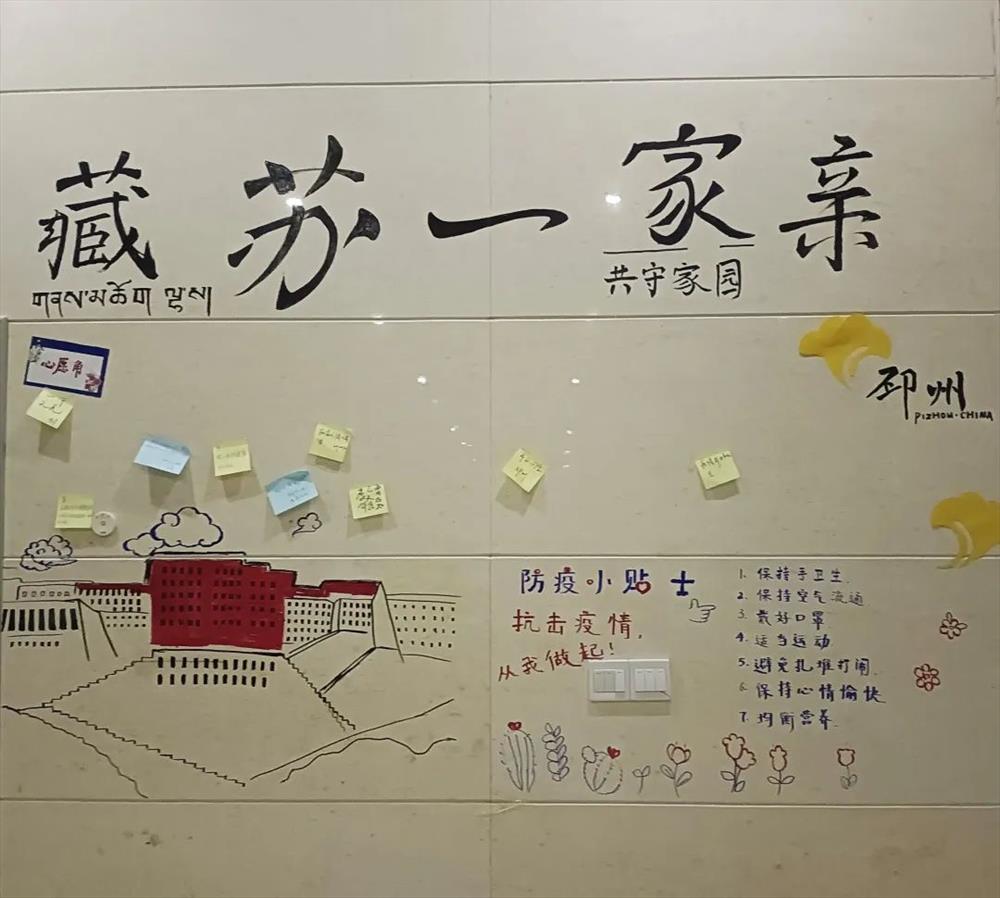 藏苏一家亲
共守家园
心愿角
邳州
PIZHOU·CHINA
防疫小贴士
抗击疫情,
从我做起!
1. 保持手卫生.
2. 保持空气流通
3. 戴好口罩
4. 适当运动
5. 避免扎堆打闹.
6. 保持心情愉快
7. 均衡营养.